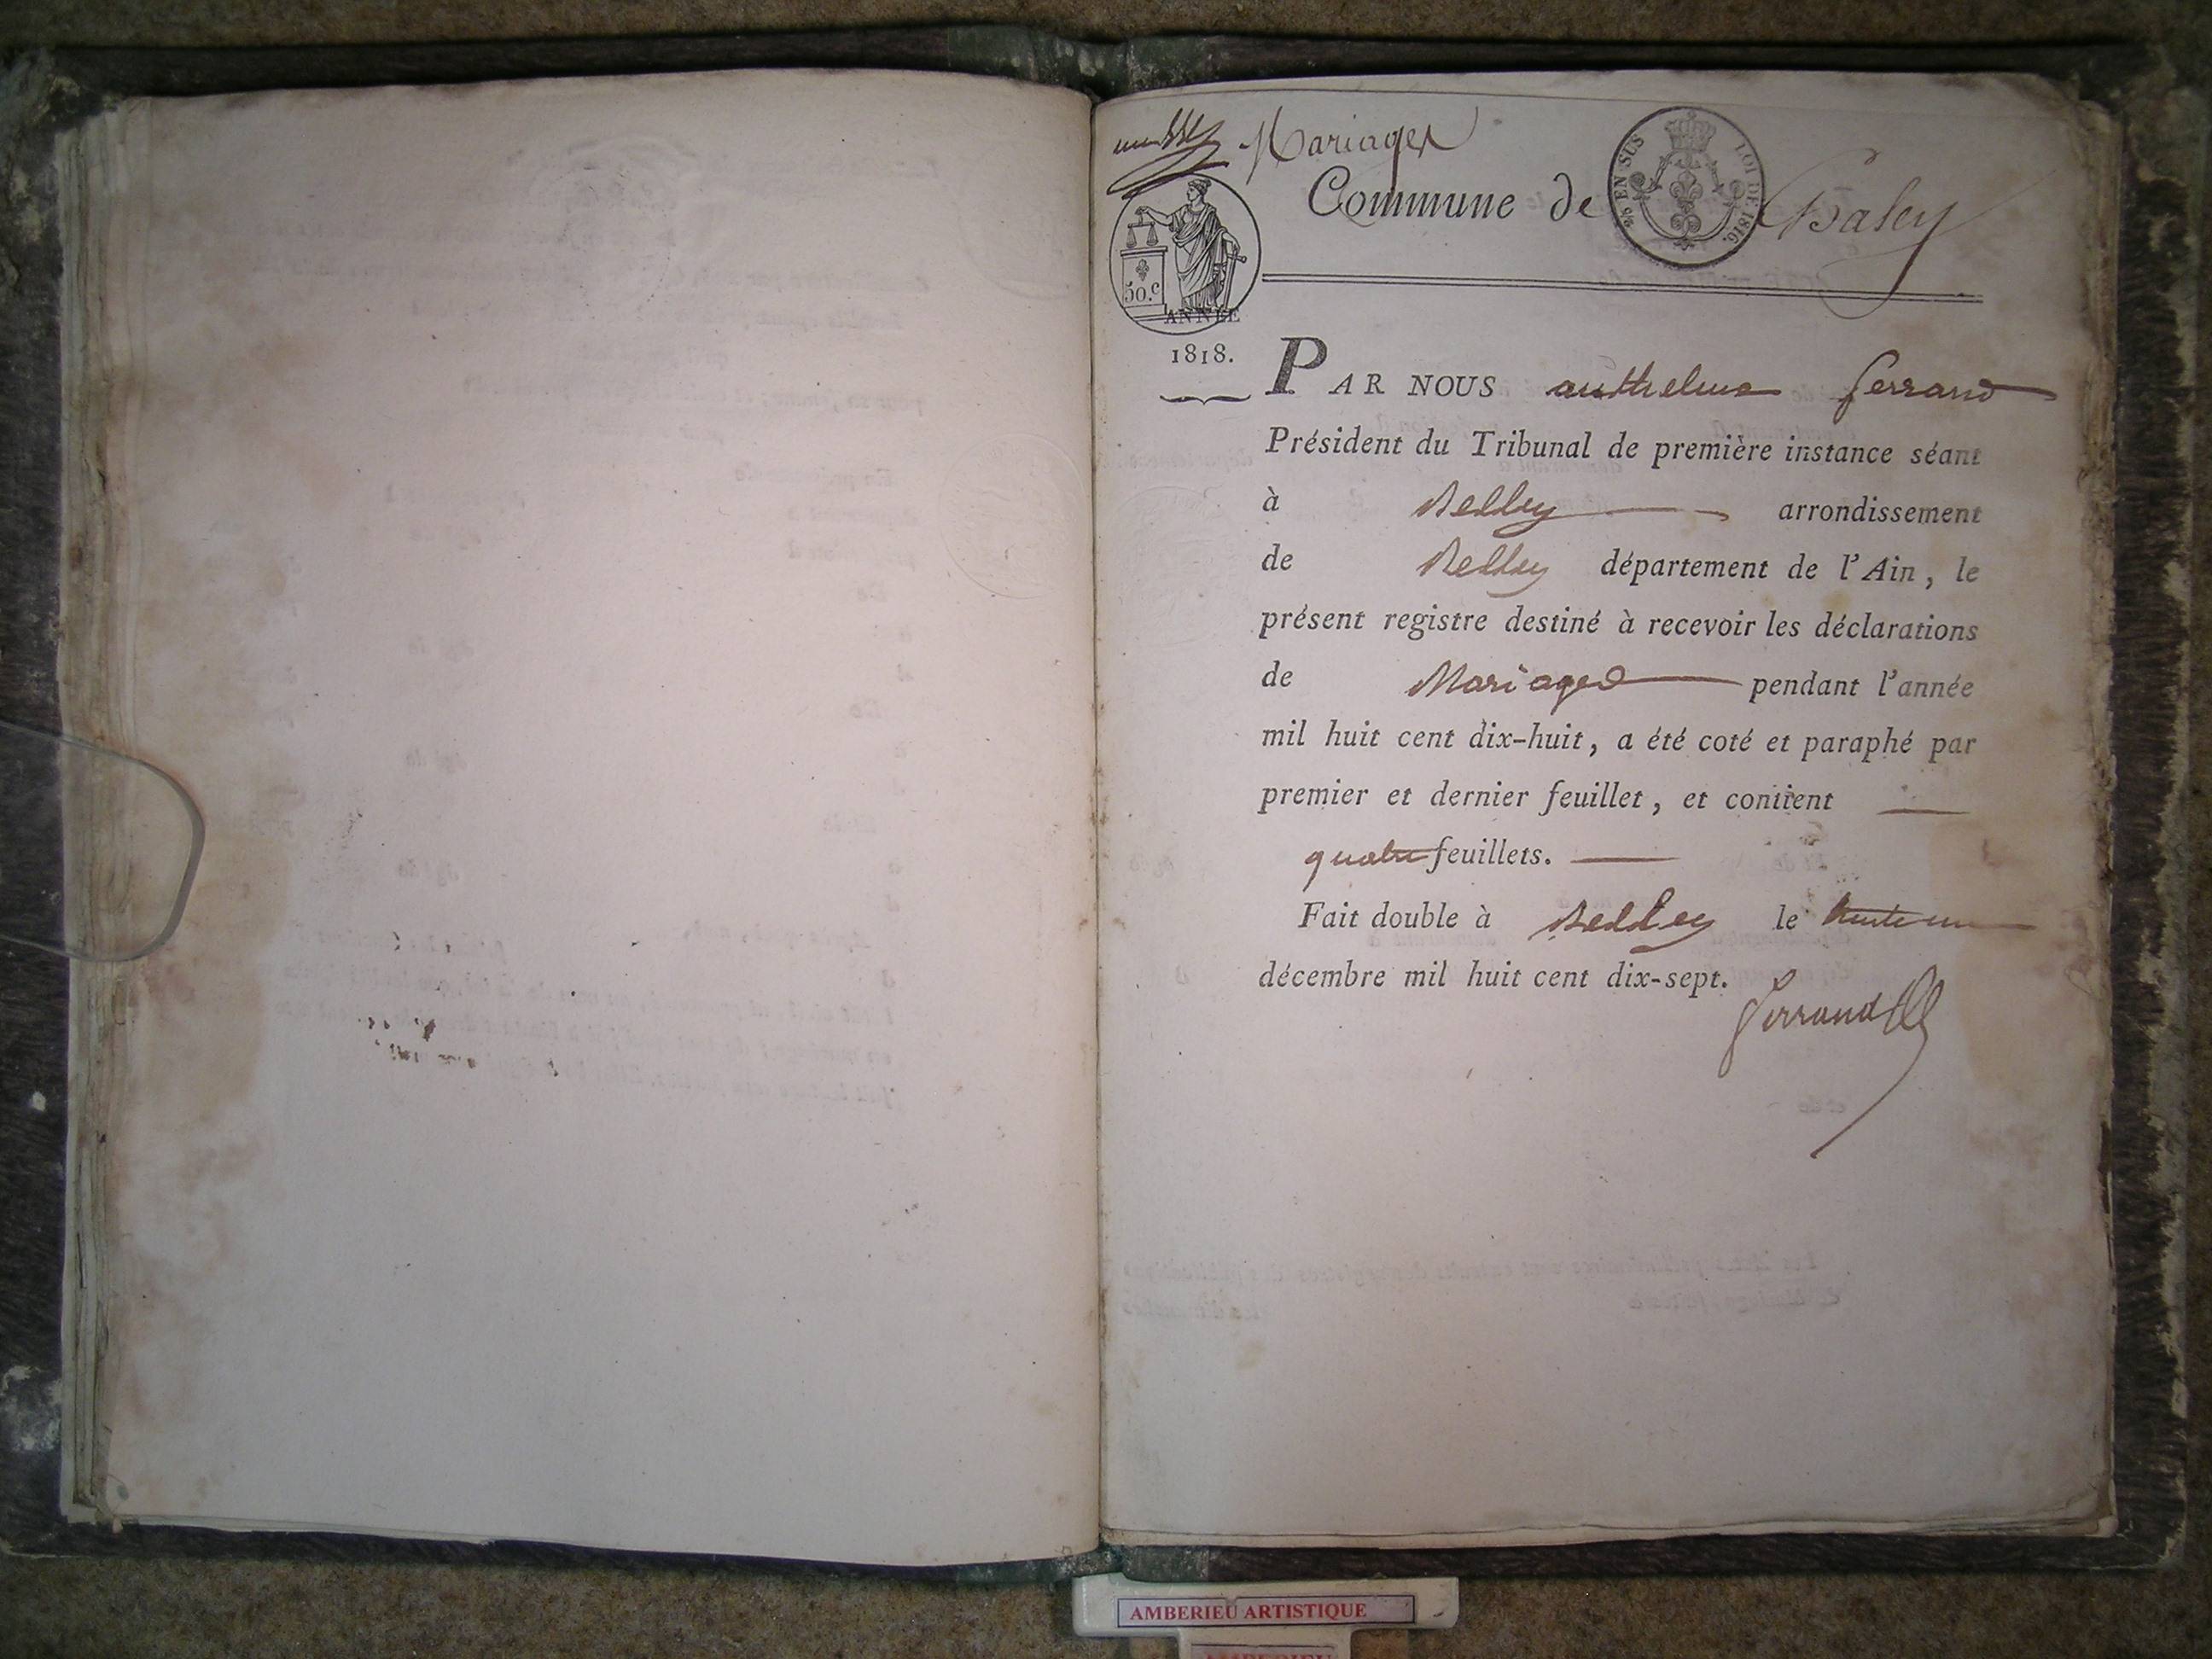 Mariages
Commune de
EN SUS LOI DE 1816.
50.c
ANNÉE
1818.
PAR NOUS anthelme ferrand
Président du Tribunal de première instance séant
à Belley arrondissement
de Belley département de l'Ain, le
présent registre destiné à recevoir les déclarations
de Mariages pendant l'année
mil huit cent dix-huit, a été coté et paraphé par
premier et dernier feuillet, et contient
quatre feuillets.
Fait double à Belley le trente un
décembre mil huit cent dix-sept.
ferrand
AMBERIEU ARTISTIQUE
AMBERIEU